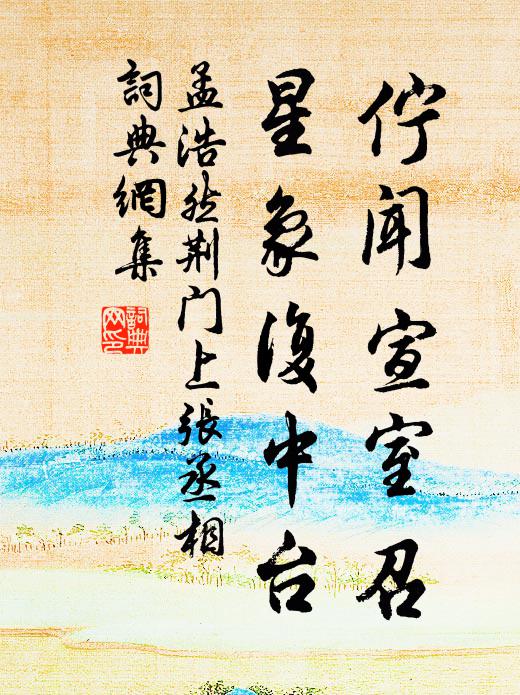 佇闻宣室召
星象復中台
孟浩然荆门上張丞相
詞典網集
詞典网印